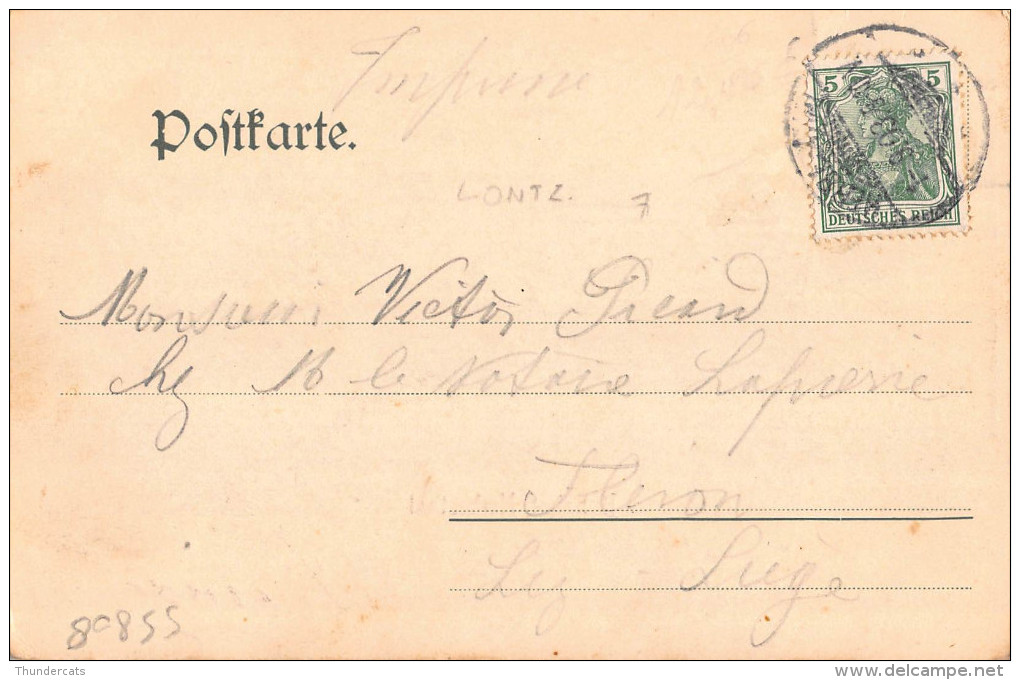 Imprimé
Postkarte.
5 5
DEUTSCHES REICH
LONTZ. 7
Monsieur Victor Picard
chez M le Notaire Lapierre
Fléron
Lez Liège
80855
Thundercats
delcampe.net